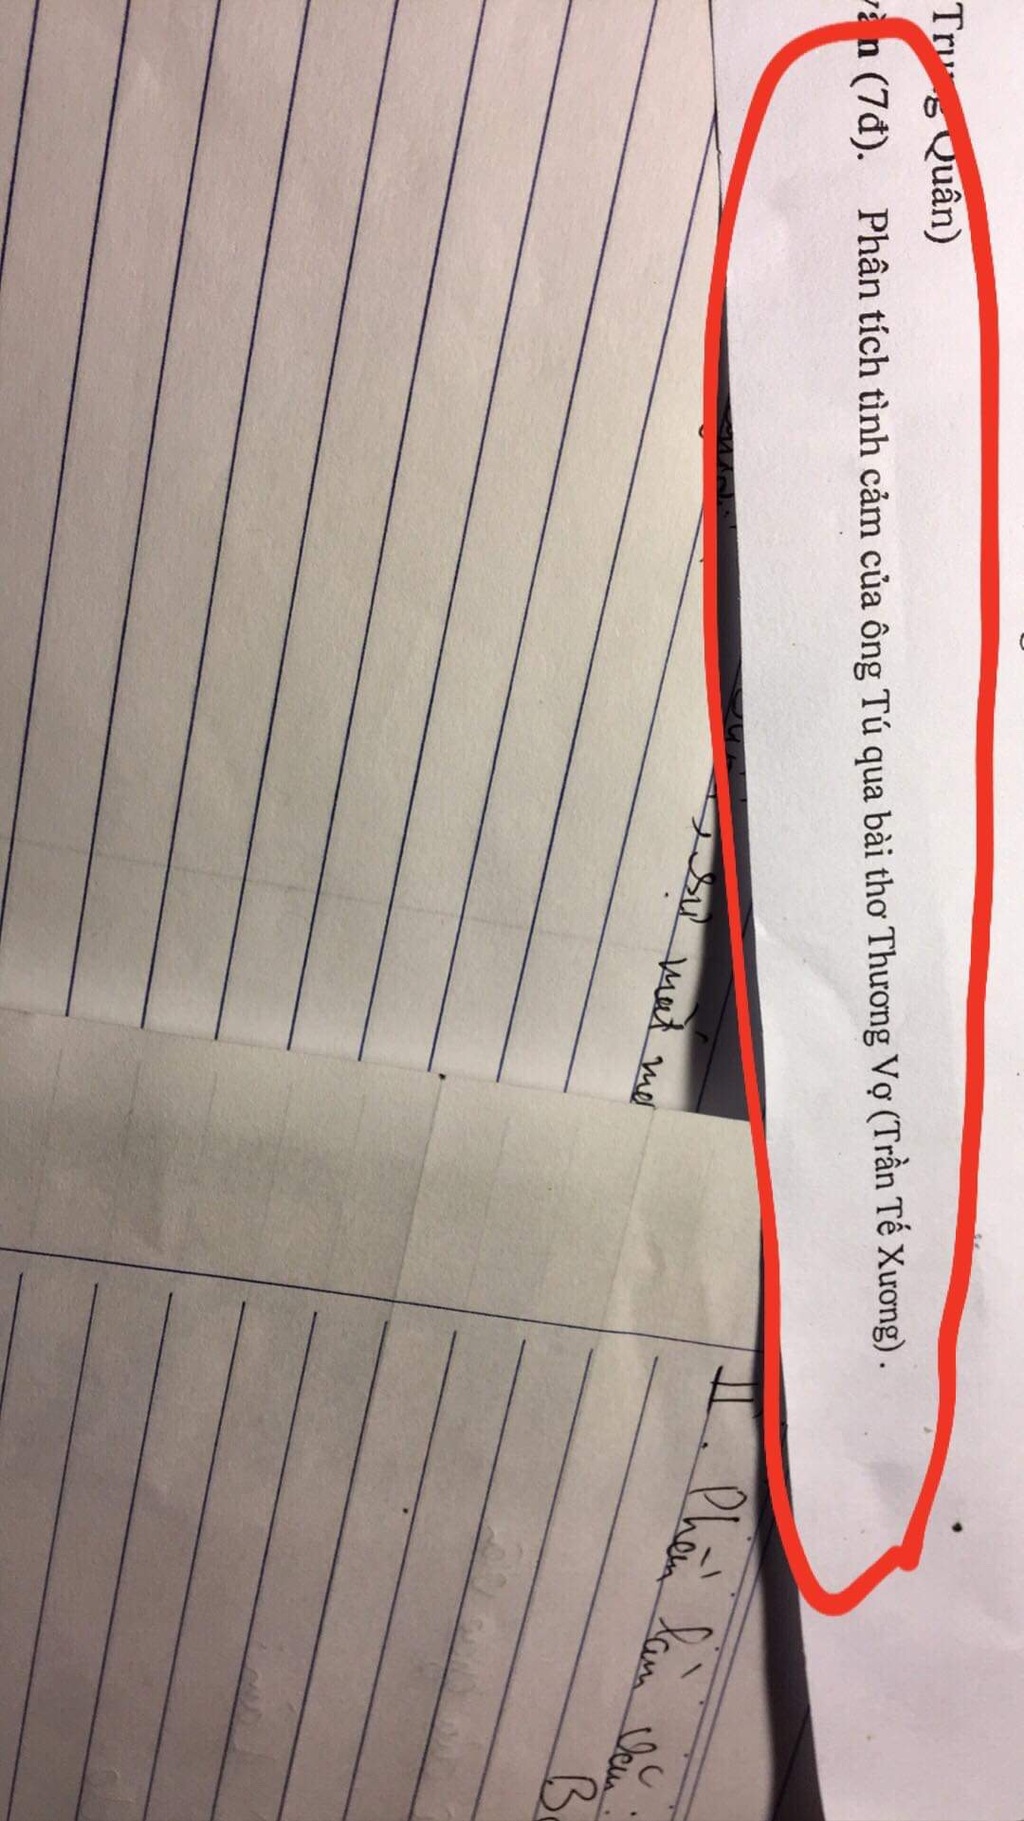 Trung Quân)
văn (7đ). Phân tích tình cảm của ông Tú qua bài thơ Thương Vợ (Trần Tế Xương).
, sự mất
II. Phần làm văn: